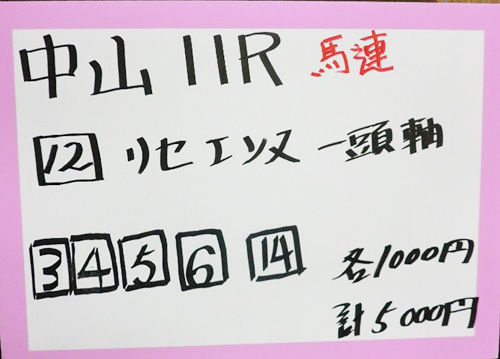 中山11R 馬連
12 リセエンヌ 一頭軸
3 4 5 6 14 各1000円
計5000円